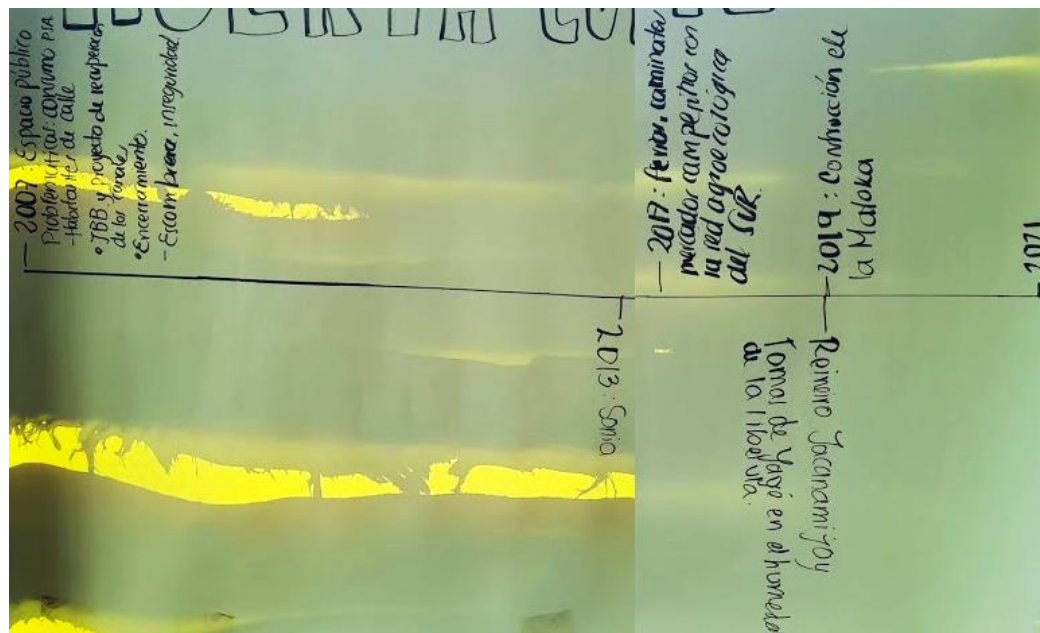 HUERTA
— 2007: Espacio público
Problemáticas: consumo PSA
- Habitantes de calle
• JBB y proyecto de recuperación
de los
• Encerramiento.
- Escombrera, inseguridad.
— 2013: Sonia
— 2017: Ferias, caminatas
mercados campesinos con
la red agroecológica
del SUR.
— 2019: Construcción de
la Maloka
— Reinerio Jacanamijoy
Tomas de Yagé en el humedal
de la libélula.
— 2021